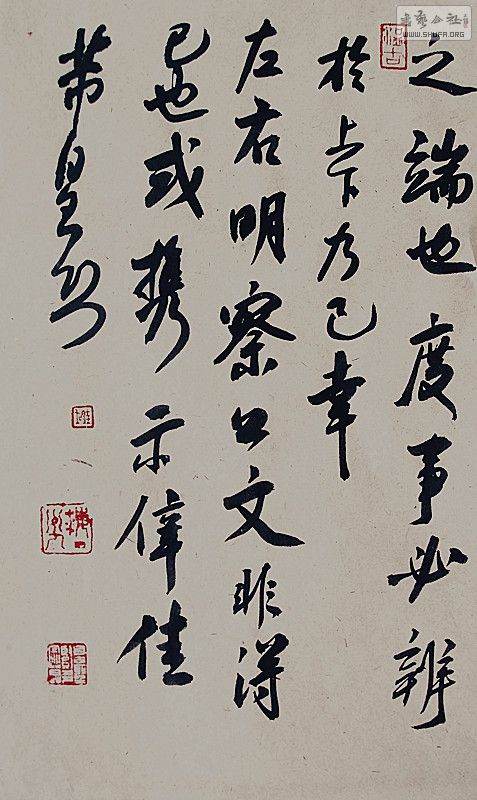 之端也度事必辨
於上下乃已幸
左右明察文非得
已也或携示偉佳
芾皇恐
書藝公社
WWW.SHUFA.ORG